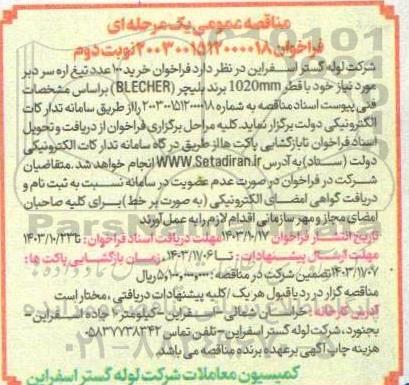 مناقصه عمومی یک مرحله ای
فراخوان ۲۰۰۳۰۰۱۵۱۲۰۰۰۰۱۸ نوبت دوم
شرکت لوله گستر اسفراین در نظر دارد فراخوان خرید ۱۰۰ عدد تیغ اره سر دبر
مورد نیاز خود با قطر 1020mm برند بلیچر (BLECHER) براساس مشخصات
فنی پیوست اسناد مناقصه به شماره ۲۰۰۳۰۰۱۵۱۲۰۰۰۰۱۸ را از طریق سامانه تدارکات
الکترونیکی دولت برگزار نماید. کلیه مراحل برگزاری فراخوان از دریافت و تحویل
اسناد فراخوان تا بازگشایی پاکت ها از طریق درگاه سامانه تدارکات الکترونیکی
دولت (ستاد) به آدرس WWW.Setadiran.ir انجام خواهد شد. متقاضیان
شرکت در فراخوان در صورت عدم عضویت در سامانه نسبت به ثبت نام و
دریافت گواهی امضای الکترونیکی (به صورت بر خط) برای کلیه صاحبان
امضای مجاز و مهر سازمانی اقدام لازم را به عمل آورند
تاریخ انتشار فراخوان ۱۴۰۳/۱۰/۱۷ مهلت دریافت اسناد فراخوان: تا ۱۴۰۳/۱۰/۲۳
مهلت ارسال پیشنهادات: تا ۱۴۰۳/۱۱/۰۶ زمان بازگشایی پاکت ها:
۱۴۰۳/۱۱/۰۷ تضمین شرکت در مناقصه: ۵,۱۰۰,۰۰۰,۰۰۰ ریال
مناقصه گزار در رد یا قبول هر یک / کلیه پیشنهادات دریافتی، مختار است
آدرس کارخانه: خراسان شمالی - اسفراین - کیلومتر ۱۰ جاده اسفراین -
بجنورد، شرکت لوله گستر اسفراین - تلفن تماس ۰۵۸۳۷۷۳۸۳۴۲
هزینه چاپ آگهی بر عهده برنده مناقصه می باشد.
کمیسیون معاملات شرکت لوله گستر اسفراین